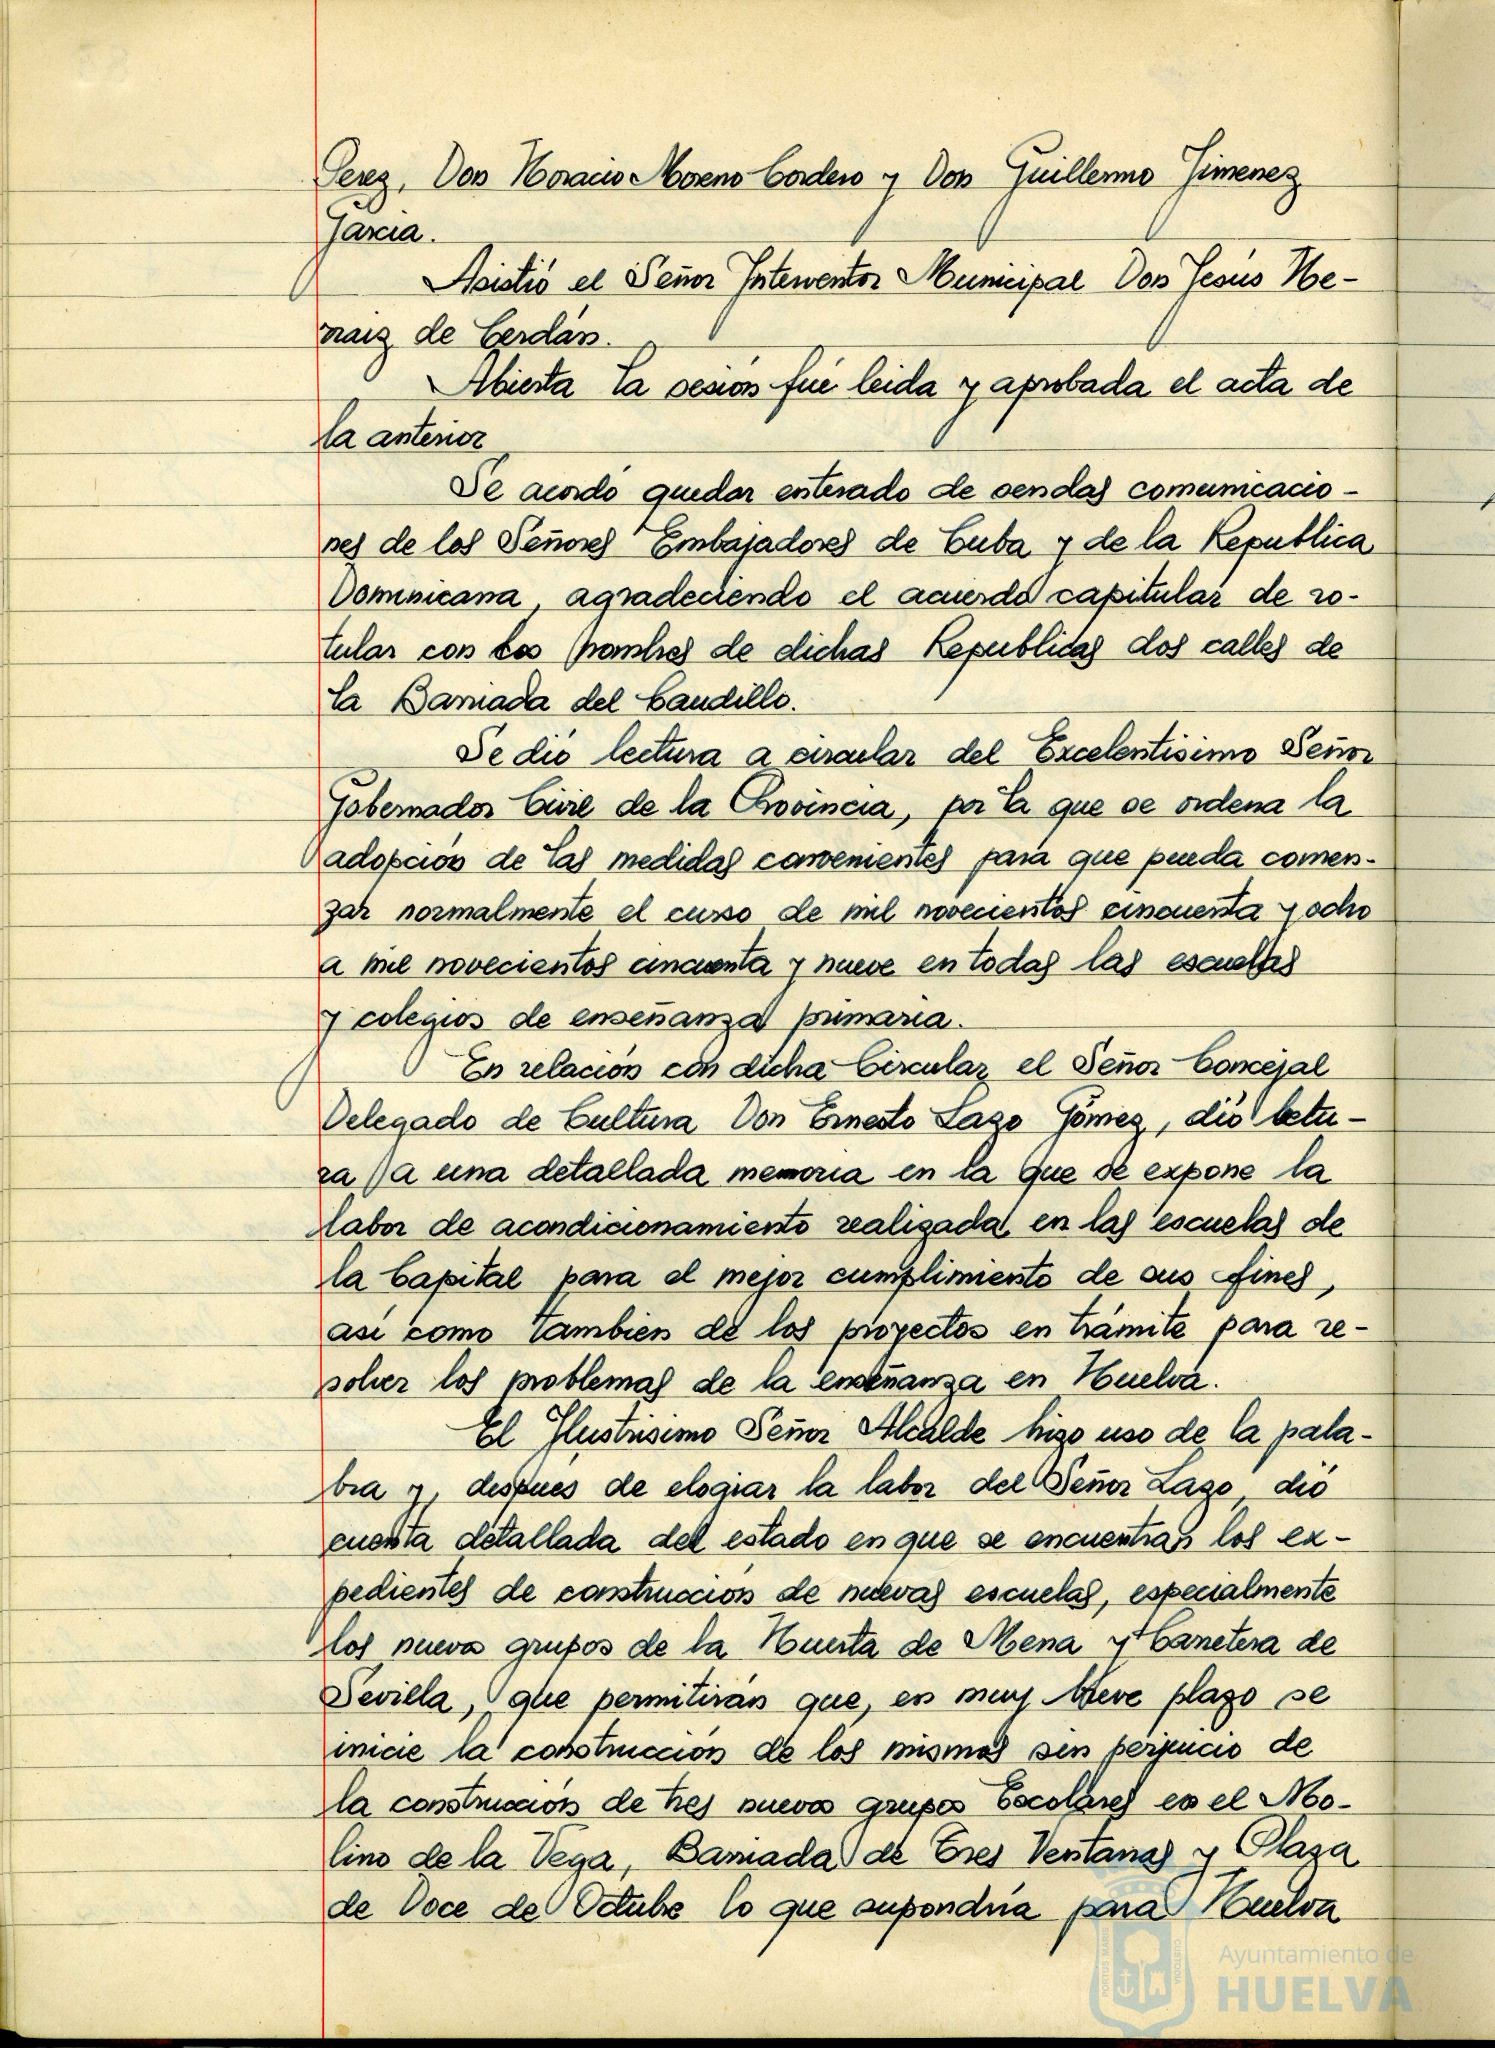 Perez, Don Horacio Moreno Cordero y Don Guillermo Jimenez
Garcia.
Asistió el Señor Interventor Municipal Don Jesús He-
raiz de Cerdán.
Abierta la sesión fué leida y aprobada el acta de
la anterior
Se acordó quedar enterado de sendas comunicacio-
nes de los Señores Embajadores de Cuba y de la Republica
Dominicana, agradeciendo el acuerdo capitular de ro-
tular con los nombres de dichas Republicas dos calles de
la Barriada del Caudillo.
Se dió lectura a circular del Excelentisimo Señor
Gobernador Civil de la Provincia, por la que se ordena la
adopción de las medidas convenientes para que pueda comen-
zar normalmente el curso de mil novecientos cincuenta y ocho
a mil novecientos cincuenta y nueve en todas las escuelas
y colegios de enseñanza primaria.
En relación con dicha Circular el Señor Concejal
Delegado de Cultura Don Ernesto Lazo Gómez, dió lectu-
ra a una detallada memoria en la que se expone la
labor de acondicionamiento realizada en las escuelas de
la Capital para el mejor cumplimiento de sus fines,
así como tambien de los proyectos en trámite para re-
solver los problemas de la enseñanza en Huelva.
El Ilustrisimo Señor Alcalde hizo uso de la pala-
bra y, después de elogiar la labor del Señor Lazo, dió
cuenta detallada del estado en que se encuentran los ex-
pedientes de construcción de nuevas escuelas, especialmente
los nuevos grupos de la Huerta de Mena y Carretera de
Sevilla, que permitirán que, en muy breve plazo se
inicie la construcción de los mismos sin perjucio de
la construcción de tres nuevos grupos Escolares en el Mo-
lino de la Vega, Barriada de Tres Ventanas y Plaza
de Doce de Octubre lo que supondría para Huelva
PORTUS MARIS
CUSTODIA
Ayuntamiento de
HUELVA